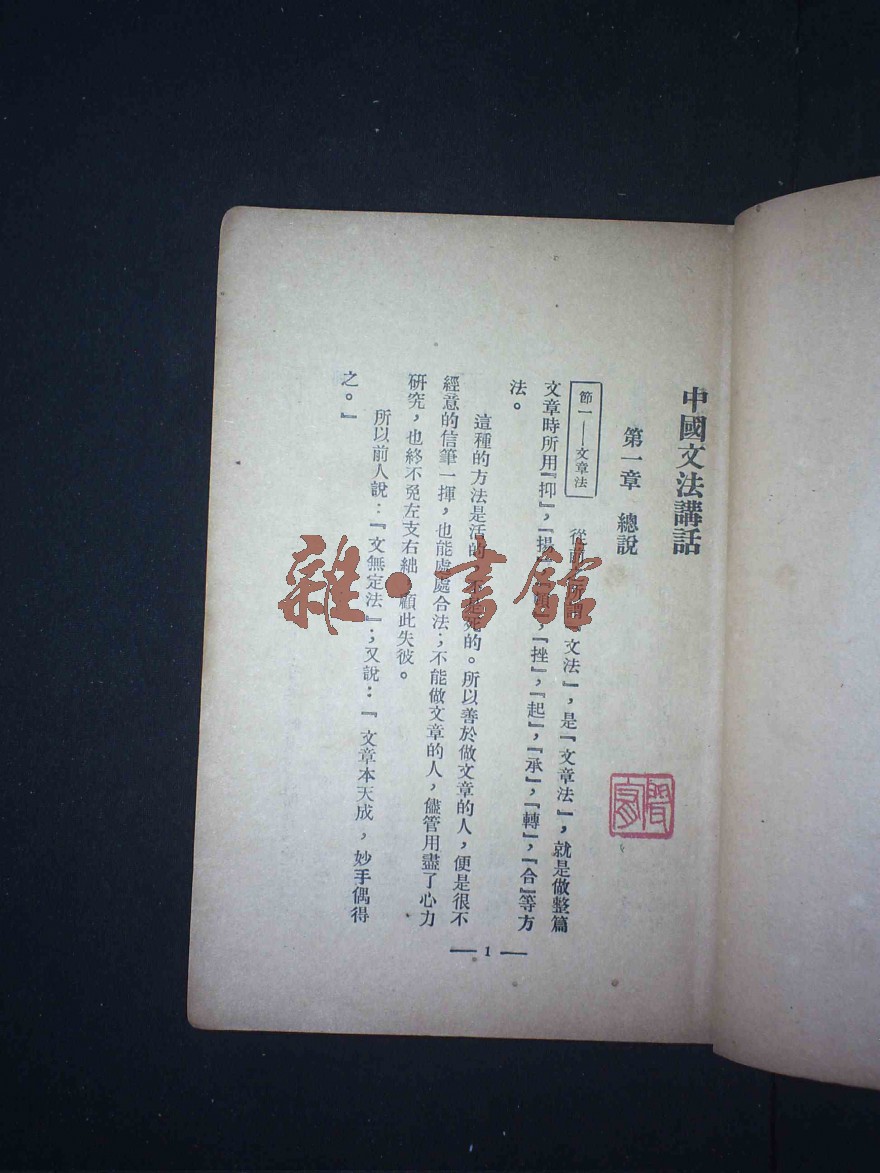 中國文法講話
第一章　總說
節一——文章法
從前所謂『文法』，是『文章法』，就是做整篇
文章時所用『抑』，『揚』，『頓』，『挫』，『起』，『承』，『轉』，『合』等方
法。
這種的方法是活的，不是死的。所以善於做文章的人，便是很不
經意的信筆一揮，也能處處合法；不能做文章的人，儘管用盡了心力
研究，也終不免左支右絀，顧此失彼。
所以前人說：『文無定法』；又說：『文章本天成，妙手偶得
之。』
— 1 —
雜·書館